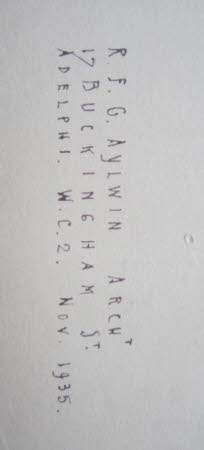 R. F. G. AYLWIN ARCHT
17 BUCKINGHAM ST.
ADELPHI. W.C.2. NOV. 1935.